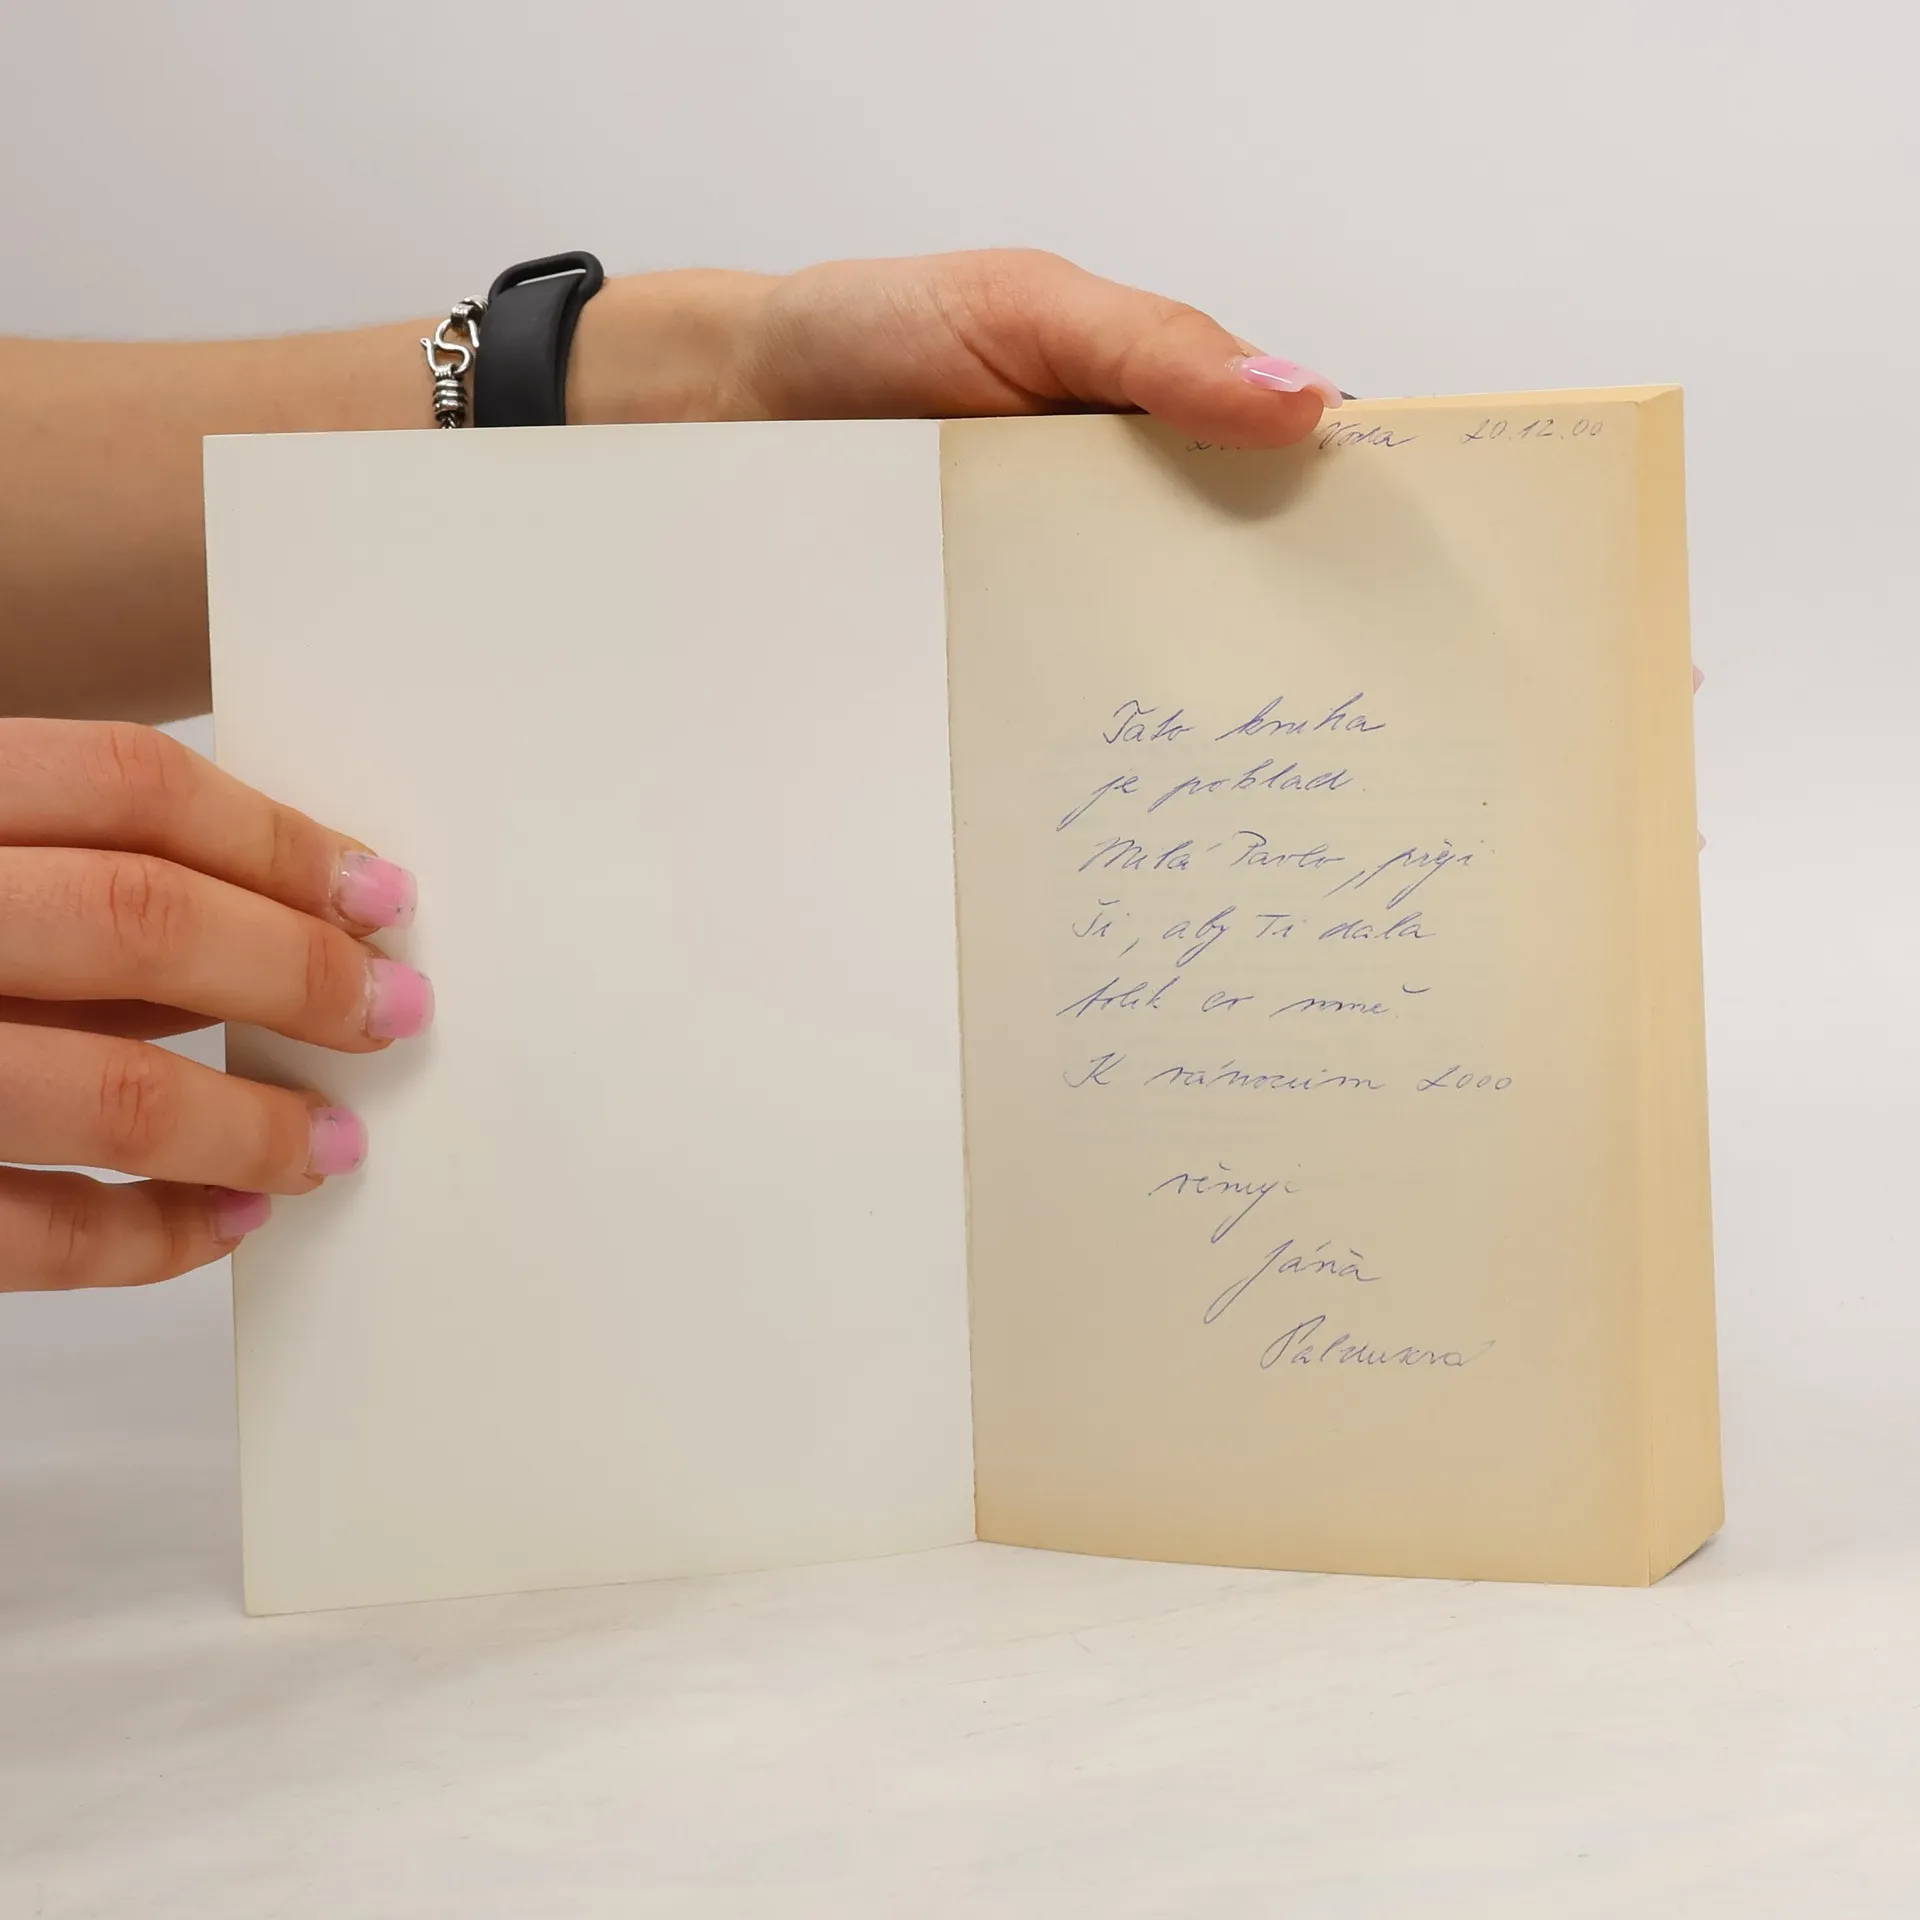 Voda 20.12.00
Tato kniha
je poklad.
Milá Pavlo, přeji
Ti, aby Ti dala
tolik co mně.
K vánocům 2000
věnuje
Jána